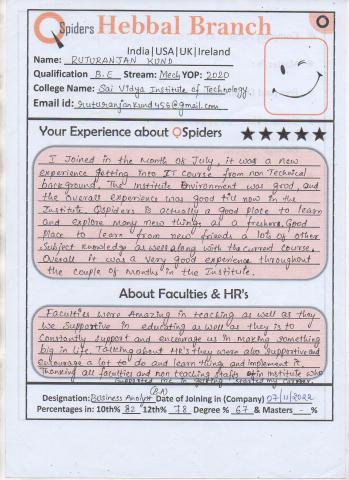 QSpiders Hebbal Branch
India | USA | UK | Ireland
Name: RUTURANJAN KUND
Qualification B.E Stream: Mech YOP: 2020
College Name: Sai Vidya Institute of Technology.
Email id: ruturanjankund456@gmail.com
Your Experience about QSpiders
I Joined in the Month of July, it was a new
experience getting into IT course from non Technical
background, The Institute Environment was good, and
the overall experience was good till now in the
Institute. Qspiders Is actually a good place to learn
and explore many new things as a fresher. Good
Place to learn from new friend a lots of other
subject knowledge as well along with the current course.
Overall it was a very good experience throughout
the couple of months in the Institute.
About Faculties & HR's
Faculties were Amazing in teaching as well as they
we supportive in educating as well as they is to
Constantly support and encourage us in making something
big in life. Talking about HR's they were also supportive and
encourage a lot to do and learn things and implement it.
Thanking all faculties and non teaching staffs of in institute who
supported me in getting started my career.
(BA)
Designation: Business Analyst Date of Joining in (Company) 07/11/2022
Percentages in: 10th% 82 12th% 78 Degree % 67 & Masters - %